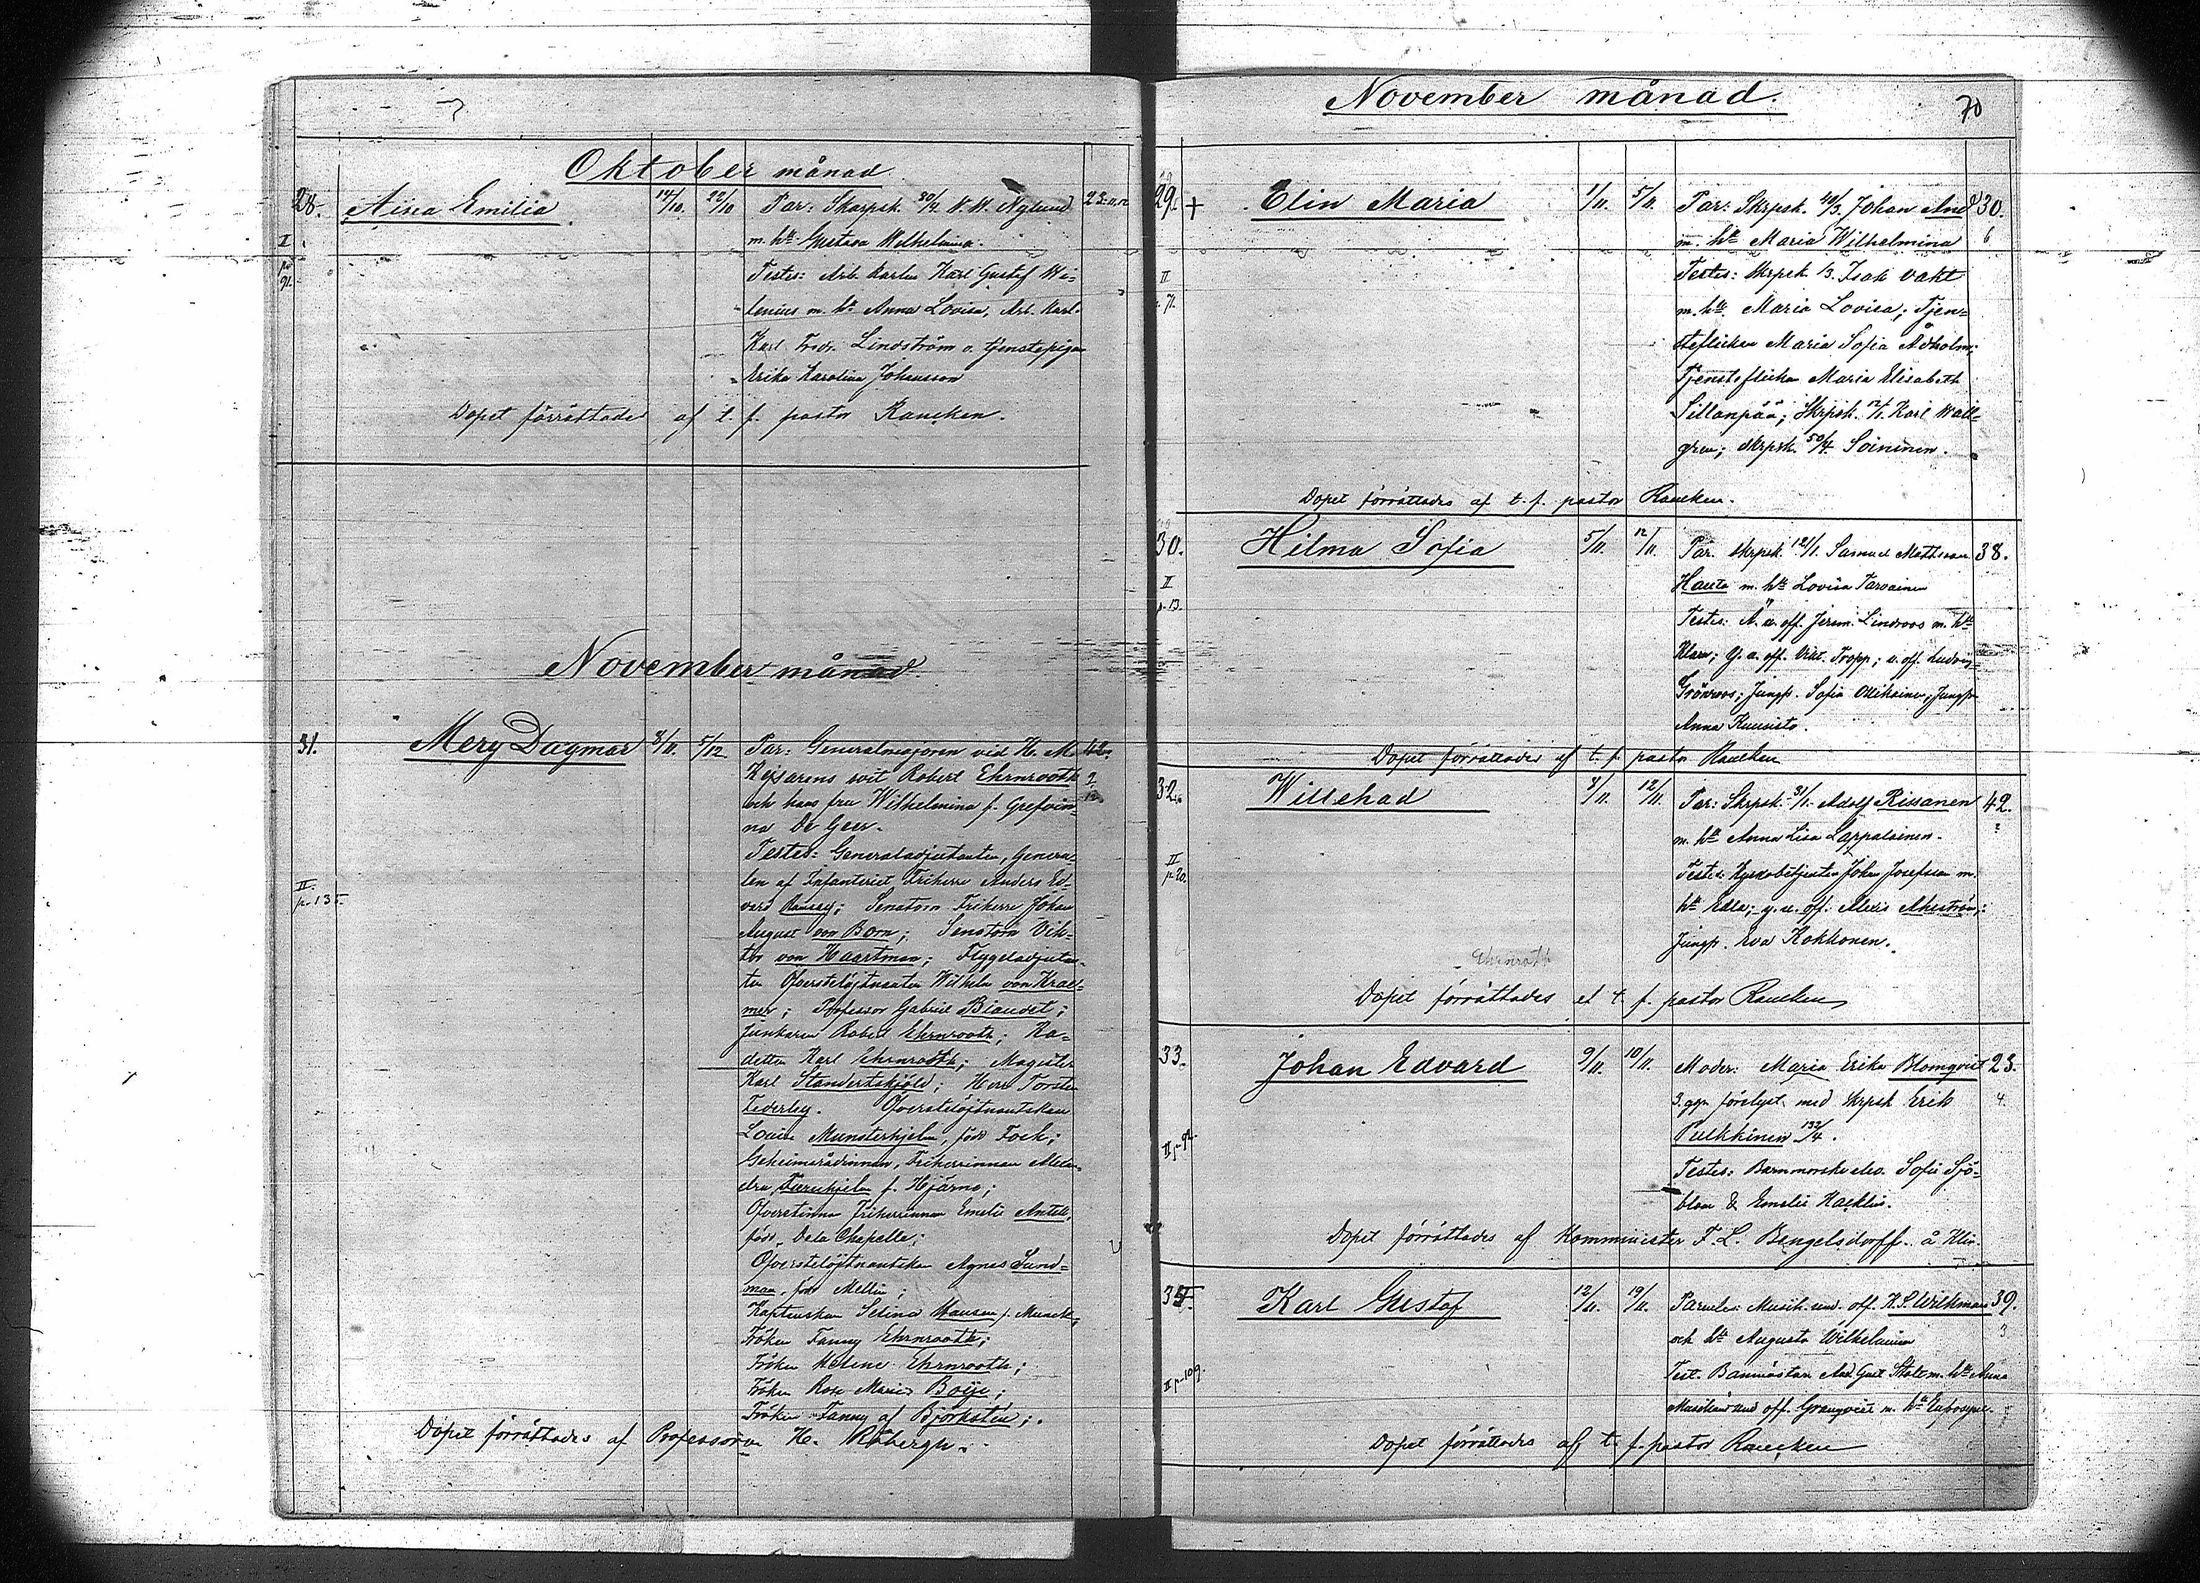 Oktober månad
28. Aina Emilia 14/10. 22/10 Par: Skarpsk. 30/4. K. W. Nylund
m. h:u Gustava Wilhelmina.
I
p. 91.
Testes: Arb. karlen Karl Gustaf We-
lenius m. h:u Anna Lovisa, Arb. Karl.
Karl Fredr. Lindström o. tjenstepigan
Erika Karolina Johansson
Dopet förrättades af t. f. pastor Raucken.
November månad
31. Mery Dagmar 8/11. 5/12. Par: Generalmajoren vid H. M. 42.
Kejsarens svit Robert Ehrnrooth
och hans fru Wilhelmina f. Grefvin-
na De Geer.
Testes: Generaladjutanten, Genera-
II.
p. 135.
len af Infanteriet Friherre Anders Ed-
vard Ramsay; Senatorn Friherre Johan
August von Born; Senatorn Vik-
tor von Haartman; Flygeladjutan-
ten Öfverstelöjtnanten Wilhelm von Krae-
mer; Professor Gabriel Biaudet;
Junkaren Robert Ehrnrooth; Ka-
detten Karl Ehrnrooth; Magister
Karl Standertskjöld; Herr Torsten
Federley. Öfverstelöjtnantskan
Louise Munsterhjelm, född Fock;
Geheimerådinnan, Friherrinnan
f. Hjärne;
Öfverstinnan Friherrinnan Emelie Antell,
född De la Chapelle;
Öfverstelöjtnantskan Agnes Sund-
man, född Mellin;
Kaptenskan Selina f. Munck;
Fröken Fanny Ehrnrooth;
Fröken Helene Ehrnrooth;
Fröken Rose Marie Boije;
Fröken Fanny af Björkstén;
Dopet förrättades af Professorn H. Råbergh.
November månad.
70
29. + Elin Maria 1/11. 5/11. Par: Skrpsk. 40/3. Johan And 30.
m. h:u Maria Wilhelmina 6
II
p. 71.
Testes: Skrpsk 1/3. Isak Vakt
m. h:u Maria Lovisa; Tjen-
steflickan Maria Sofia Ådholm;
Tjensteflicka Maria Elisabeth
Sillanpää; Skrpsk. Karl Wall-
gren; skrpsk. 50/4. Soininen.
Dopet förrättades af t. f. pastor Raucken.
30. Hilma Sofia 5/11. 12/11. Par. skrpsk. 121/1. Samuel Mattsson 38.
II
p. 13.
Hauta m. h:u Lovisa Tarvainen
Testes: Ä. u. off. Jerem. Lindroos m. h:u
Klara; y. u. off. Vikt. Tropp; u. off. Ludvig
Grönroos; Jungf. Sofia Ollikainen; Jungf.
Anna Kuusisto.
Dopet förrättades af t. f. pastor Raucken
32. Willehad 8/11. 12/11. Par: Skrpsk. 31/1. Adolf Rissanen 42.
m. h:u Anna Lisa Lappalainen.
II
p. 20.
Testes: Kyrkobetjenten Johan Josefsson m.
h:u Edla; y. u. off. Alexis Ahlström;
Jungf. Eva Kokkonen.
Ehrnroth
Dopet förrättades af t. f. pastor Raucken
33. Johan Edvard 9/11. 10/11. Moder: Maria Erika Blomqvist 23.
3. ggr förelyst med skrpsk Erik 4.
Pulkkinen 132/4.
II p. 92.
Testes: Barnmorske elev. Sofie Sjö-
blom & Emelie Hacklin.
Dopet förrättades af Komminister F. L. Bengelsdorff å Kliv.
Karl Gustaf 12/11. 19/11. Parentes: Musik. und. off. K. S. Wilkman 39.
och h:u Augusta Wilhelmina 3
II p. 109.
Test. Banmästarn And Gust Stolt m. h:u Anna
Musikand und off. Granqvist m. h:u Eufrosyne.
Dopet förrättades af t. f. pastor Raucken